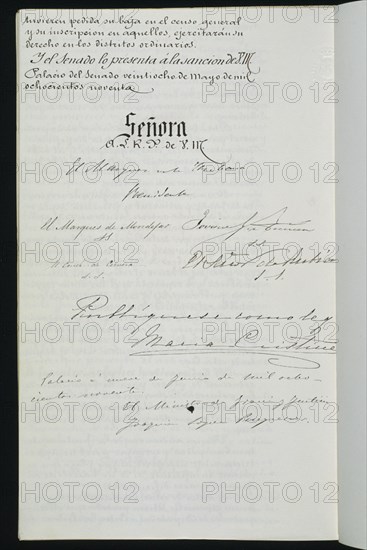 tuvieren pedida su baja en el censo general
y su inscripcion en aquellos, ejercitarán su
derecho en los distritos ordinarios.
Y el Senado lo presenta á la sancion de V.M.
Palacio del Senado veintiocho de Mayo de mil
ochocientos noventa
Señora
A. L. R. P. de V. M.
El Marques de la Habana
Presidente
El Marques de Mondejar
S.S.
El Señor de Rubianes
S.S.
S.S.
Publíquese como ley
Maria Cristina
Palacio á nueve de junio de mil ocho-
cientos noventa
El Ministro de Gracia y Justicia
Joaquin Lopez Puigcerver
PHOTO 12